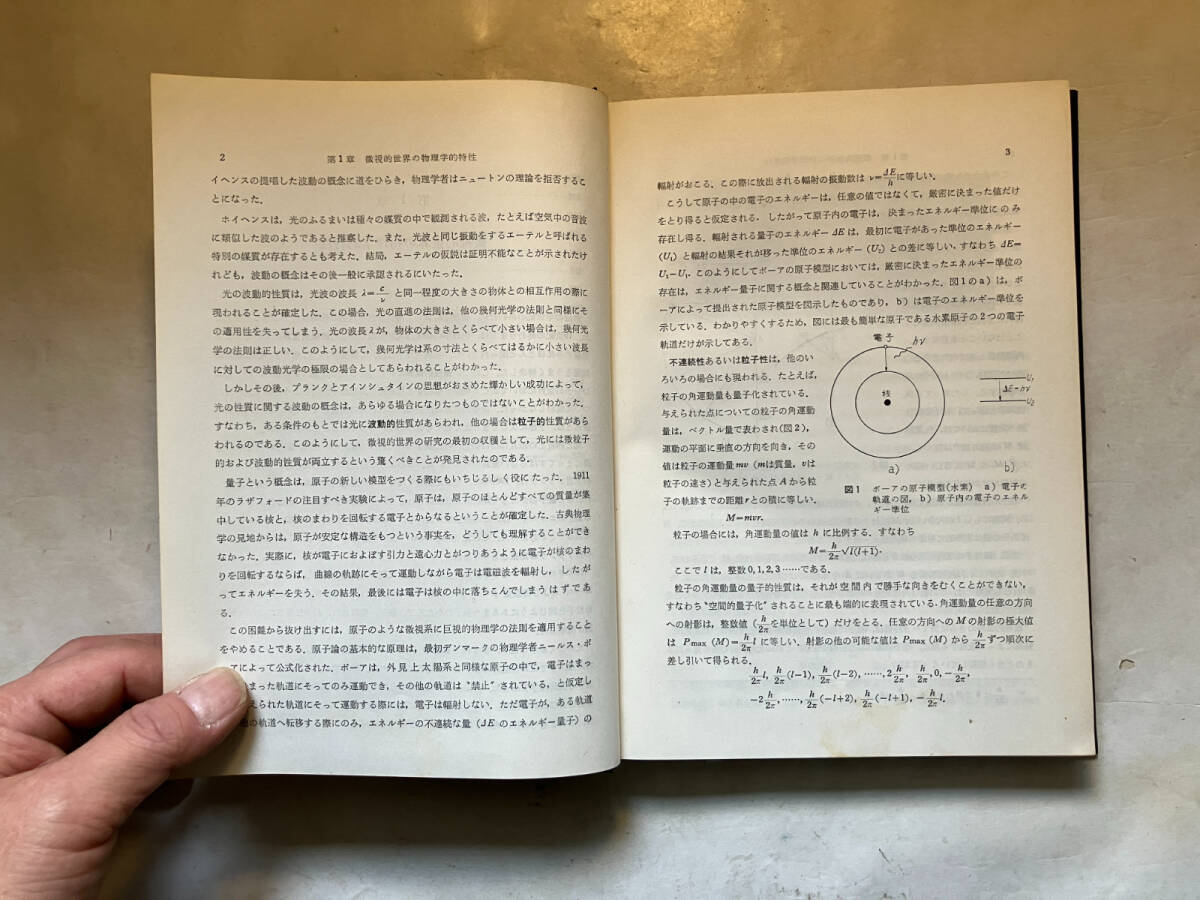 2
第1章 微視的世界の物理学的特性
イヘンスの提唱した波動の概念に道をひらき，物理学者はニュートンの理論を拒否するこ
とになった．
ホイヘンスは，光のふるまいは種々の媒質の中で観測される波，たとえば空気中の音波
に類似した波のようであると推察した．また，光波と同じ振動をするエーテルと呼ばれる
特別の媒質が存在するとも考えた．結局，エーテルの仮説は証明不能なことが示されたけ
れども，波動の概念はその後一般に承認されるにいたった．
光の波動的性質は，光波の波長 λ=c/ν と同一程度の大きさの物体との相互作用の際に
現われることが確定した．この場合，光の直進の法則は，他の幾何光学の法則と同様にそ
の適用性を失ってしまう．光の波長λが，物体の大きさとくらべて小さい場合は，幾何光
学の法則は正しい．このようにして，幾何光学は系の寸法とくらべてはるかに小さい波長
に対しての波動光学の極限の場合としてあらわれることがわかった．
しかしその後，プランクとアインシュタインの思想がおさめた輝かしい成功によって，
光の性質に関する波動の概念は，あらゆる場合になりたつものではないことがわかった．
すなわち，ある条件のもとでは光に波動的性質があらわれ，他の場合は粒子的性質があら
われるのである．このようにして，微視的世界の研究の最初の収穫として，光には微粒子
的および波動的性質が両立するという驚くべきことが発見されたのである．
量子という概念は，原子の新しい模型をつくる際にもいちじるしく役にたった．1911
年のラザフォードの注目すべき実験によって，原子は，原子のほとんどすべての質量が集
中している核と，核のまわりを回転する電子とからなるということが確定した．古典物理
学の見地からは，原子が安定な構造をもつという事実を，どうしても理解することができ
なかった．実際に，核が電子におよぼす引力と遠心力とがつりあうように電子が核のまわ
りを回転するならば，曲線の軌跡にそって運動しながら電子は電磁波を輻射し，したが
ってエネルギーを失う．その結果，最後には電子は核の中に落ちこんでしまうはずであ
る．
この困難から抜け出すには，原子のような微視系に巨視的物理学の法則を適用すること
をやめることである．原子論の基本的な原理は，最初デンマークの物理学者ニールス・ボ
アによって公式化された．ボーアは，外見上太陽系と同様な原子の中で，電子はまっ
まった軌道にそってのみ運動でき，その他の軌道は“禁止”されている，と仮定し
えられた軌道にそって運動する際には，電子は輻射しない．ただ電子が，ある軌道
の軌道へ転移する際にのみ，エネルギーの不連続な量（ΔEのエネルギー量子）の
3
輻射がおこる．この際に放出される輻射の振動数は ν=ΔE/h に等しい．
こうして原子の中の電子のエネルギーは，任意の値ではなくて，厳密に決まった値だけ
をとり得ると仮定される．したがって原子内の電子は，決まったエネルギー準位にのみ
存在し得る．輻射される量子のエネルギー ΔE は，最初に電子があった準位のエネルギー
(U₁) と輻射の結果それが移った準位のエネルギー (U₂) との差に等しい，すなわち ΔE=
U₁−U₁．このようにしてボーアの原子模型においては，厳密に決まったエネルギー準位の
存在は，エネルギー量子に関する概念と関連していることがわかった．図1のa）は，ボ
ーアによって提出された原子模型を図示したものであり，b）は電子のエネルギー準位を
示している．わかりやすくするため，図には最も簡単な原子である水素原子の2つの電子
軌道だけが示してある．
不連続性あるいは粒子性は，他のい
ろいろの場合にも現われる．たとえば，
粒子の角運動量も量子化されている．
与えられた点についての粒子の角運動
量は，ベクトル量で表わされ（図2），
運動の平面に垂直の方向を向き，その
値は粒子の運動量 mv（mは質量，vは
粒子の速さ）と与えられた点 A から粒
子の軌跡までの距離 r との積に等しい．
電子
hν
核
a)
U₁
ΔE=hν
U₂
b)
図1 ボーアの原子模型(水素) a）電子の
軌道の図，b）原子内の電子のエネル
ギー準位
M=mvr.
粒子の場合には，角運動量の値は h に比例する．すなわち
M=h/2π √l(l+1).
ここで l は，整数0,1,2,3……である．
粒子の角運動量の量子的性質は，それが空間内で勝手な向きをむくことができない，
すなわち“空間的量子化”されることに最も端的に表現されている．角運動量の任意の方向
への射影は，整数値（h/2πを単位として）だけをとる．任意の方向への M の射影の極大値
は Pmax (M)=h/2π l に等しい．射影の他の可能な値は Pmax (M) から h/2π ずつ順次に
差し引いて得られる．
h/2π l, h/2π (l−1), h/2π (l−2), ……, 2 h/2π, h/2π, 0, −h/2π,
−2 h/2π, ……, h/2π (−l+2), h/2π (−l+1), −h/2π l.